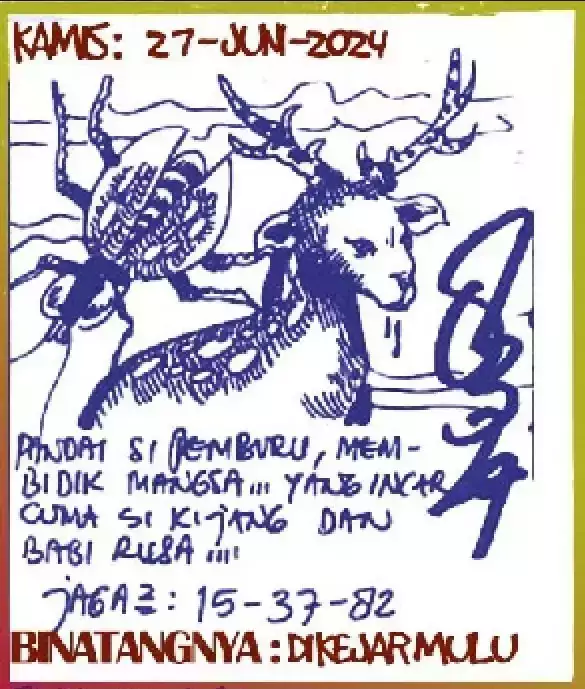 KAMIS: 27-JUN-2024
PANDAI SI PEMBURU, MEM-
BIDIK MANGSA... YANG INCAR
CUMA SI KIJANG DAN
BABI RUSA ....
JAGA2: 15-37-82
BINATANGNYA: DIKEJAR MULU